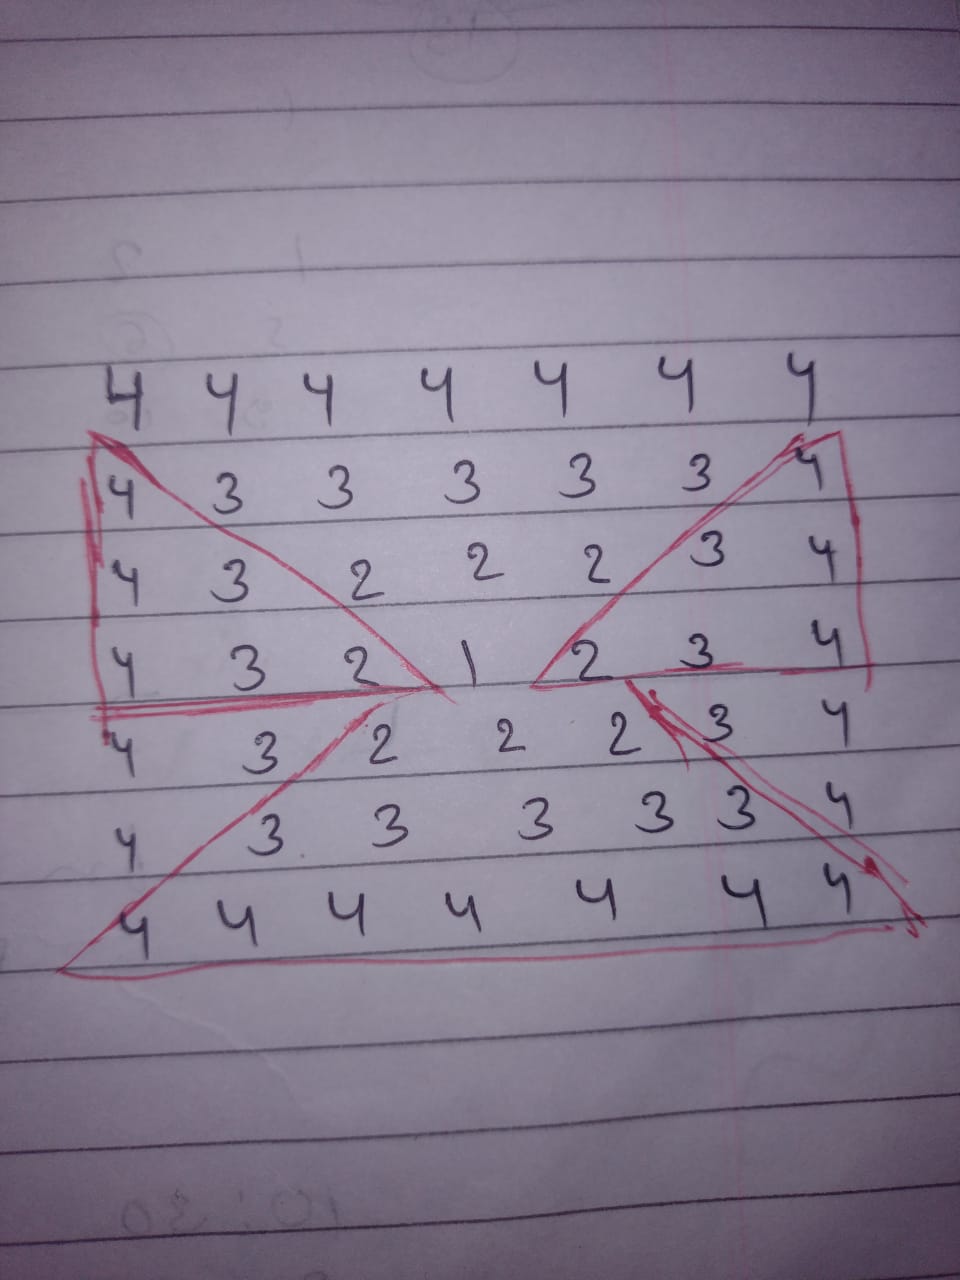 4 4 4 4 4 4 4
4 3 3 3 3 3 4
4 3 2 2 2 3 4
4 3 2 1 2 3 4
4 3 2 2 2 3 4
4 3 3 3 3 3 4
4 4 4 4 4 4 4